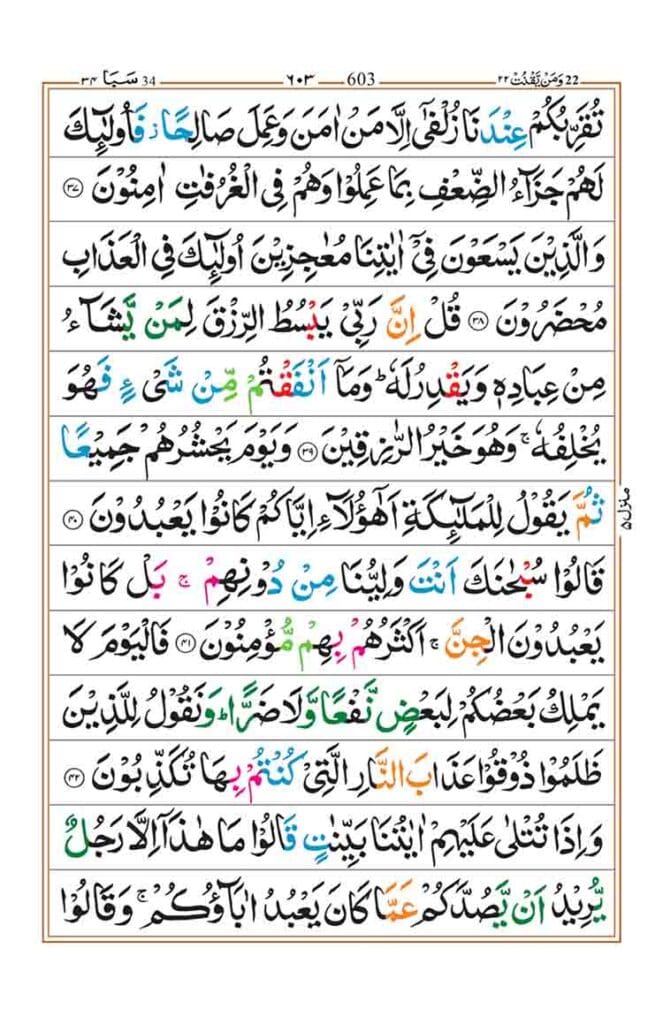 سَبَا ٣٤ 34 ٦٠٣ 603 وَمَنْ يَّقْنُتْ ٢٢ 22
تُقَرِّبُكُمْ عِنْدَنَا زُلْفٰۤى اِلَّا مَنْ اٰمَنَ وَعَمِلَ صَالِحًا ز فَاُولٰٓئِكَ
لَهُمْ جَزَآءُ الضِّعْفِ بِمَا عَمِلُوْا وَهُمْ فِى الْغُرُفٰتِ اٰمِنُوْنَ ﴿٣٧﴾
وَالَّذِيْنَ يَسْعَوْنَ فِىْۤ اٰيٰتِنَا مُعٰجِزِيْنَ اُولٰٓئِكَ فِى الْعَذَابِ
مُحْضَرُوْنَ ﴿٣٨﴾ قُلْ اِنَّ رَبِّىْ يَبْسُطُ الرِّزْقَ لِمَنْ يَّشَآءُ
مِنْ عِبَادِهٖ وَيَقْدِرُ لَهٗ ؕ وَمَاۤ اَنْفَقْتُمْ مِّنْ شَىْءٍ فَهُوَ
يُخْلِفُهٗ ۚ وَهُوَ خَيْرُ الرّٰزِقِيْنَ ﴿٣٩﴾ وَيَوْمَ يَحْشُرُهُمْ جَمِيْعًا
ثُمَّ يَقُوْلُ لِلْمَلٰٓئِكَةِ اَهٰٓؤُلَآءِ اِيَّاكُمْ كَانُوْا يَعْبُدُوْنَ ﴿٤٠﴾
قَالُوْا سُبْحٰنَكَ اَنْتَ وَلِيُّنَا مِنْ دُوْنِهِمْ ۚ بَلْ كَانُوْا
يَعْبُدُوْنَ الْجِنَّ ۚ اَكْثَرُهُمْ بِهِمْ مُّؤْمِنُوْنَ ﴿٤١﴾ فَالْيَوْمَ لَا
يَمْلِكُ بَعْضُكُمْ لِبَعْضٍ نَّفْعًا وَّلَا ضَرًّا ؕ وَنَقُوْلُ لِلَّذِيْنَ
ظَلَمُوْا ذُوْقُوْا عَذَابَ النَّارِ الَّتِىْ كُنْتُمْ بِهَا تُكَذِّبُوْنَ ﴿٤٢﴾
وَاِذَا تُتْلٰى عَلَيْهِمْ اٰيٰتُنَا بَيِّنٰتٍ قَالُوْا مَا هٰذَاۤ اِلَّا رَجُلٌ
يُّرِيْدُ اَنْ يَّصُدَّكُمْ عَمَّا كَانَ يَعْبُدُ اٰبَآؤُكُمْ ۚ وَقَالُوْا
منزل ٥